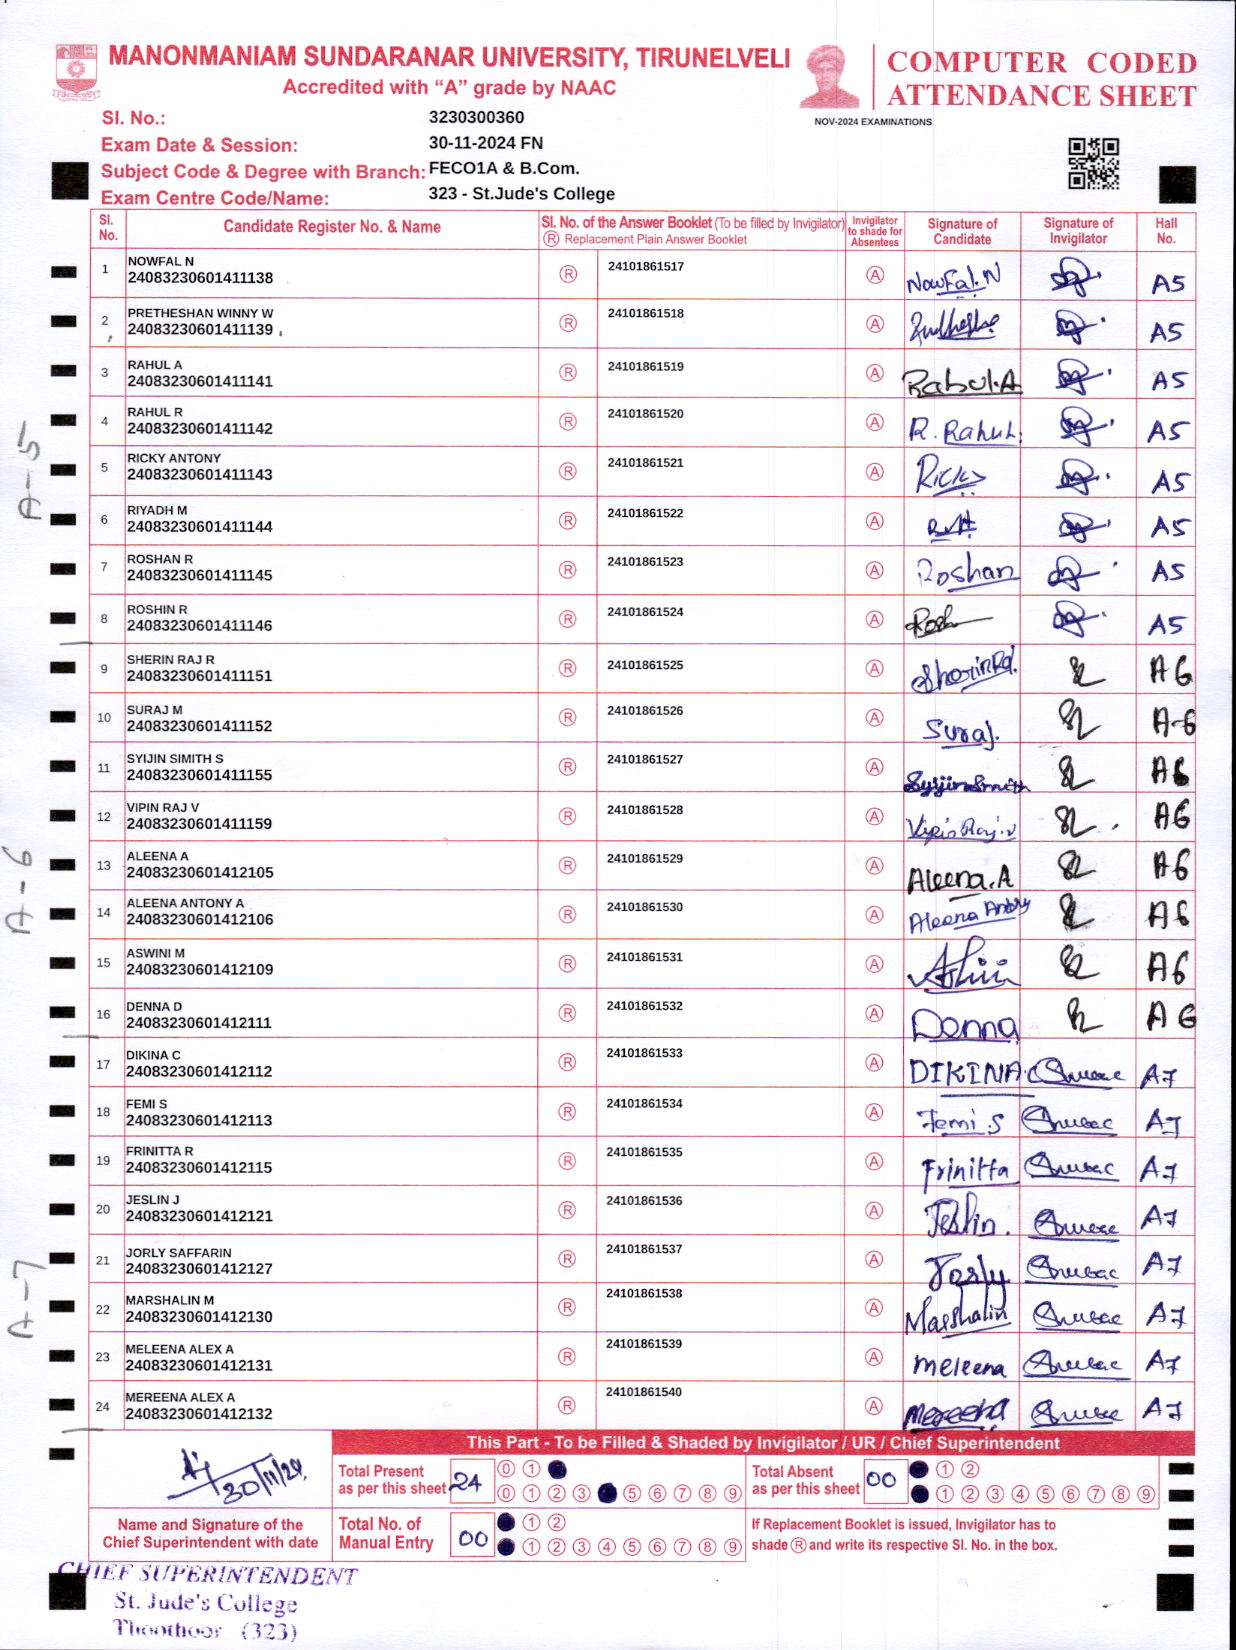 MANONMANIAM SUNDARANAR UNIVERSITY, TIRUNELVELI
Accredited with “A” grade by NAAC
COMPUTER CODED
ATTENDANCE SHEET
NOV-2024 EXAMINATIONS
Sl. No.: 3230300360
Exam Date & Session: 30-11-2024 FN
Subject Code & Degree with Branch: FECO1A & B.Com.
Exam Centre Code/Name: 323 - St.Jude's College
Sl. No. Candidate Register No. & Name Sl. No. of the Answer Booklet (To be filled by Invigilator) Ⓡ Replacement Plain Answer Booklet Invigilator to shade for Absentees Signature of Candidate Signature of Invigilator Hall No.
1 NOWFAL N 24083230601411138 Ⓡ 24101861517 Ⓐ Nowfal.N A5
2 PRETHESHAN WINNY W 24083230601411139 Ⓡ 24101861518 Ⓐ A5
3 RAHUL A 24083230601411141 Ⓡ 24101861519 Ⓐ Rahul.A A5
4 RAHUL R 24083230601411142 Ⓡ 24101861520 Ⓐ R. Rahul. A5
5 RICKY ANTONY 24083230601411143 Ⓡ 24101861521 Ⓐ Ricky A5
6 RIYADH M 24083230601411144 Ⓡ 24101861522 Ⓐ A5
7 ROSHAN R 24083230601411145 Ⓡ 24101861523 Ⓐ Roshan A5
8 ROSHIN R 24083230601411146 Ⓡ 24101861524 Ⓐ Rosh A5
9 SHERIN RAJ R 24083230601411151 Ⓡ 24101861525 Ⓐ A6
10 SURAJ M 24083230601411152 Ⓡ 24101861526 Ⓐ Suraj. A-6
11 SYIJIN SIMITH S 24083230601411155 Ⓡ 24101861527 Ⓐ A6
12 VIPIN RAJ V 24083230601411159 Ⓡ 24101861528 Ⓐ Vipin Raj.V A6
13 ALEENA A 24083230601412105 Ⓡ 24101861529 Ⓐ Aleena.A A6
14 ALEENA ANTONY A 24083230601412106 Ⓡ 24101861530 Ⓐ Aleena Antony A6
15 ASWINI M 24083230601412109 Ⓡ 24101861531 Ⓐ A6
16 DENNA D 24083230601412111 Ⓡ 24101861532 Ⓐ Denna A6
17 DIKINA C 24083230601412112 Ⓡ 24101861533 Ⓐ DIKINA.C A7
18 FEMI S 24083230601412113 Ⓡ 24101861534 Ⓐ Femi.S A7
19 FRINITTA R 24083230601412115 Ⓡ 24101861535 Ⓐ Frinitta A7
20 JESLIN J 24083230601412121 Ⓡ 24101861536 Ⓐ Jeslin. A7
21 JORLY SAFFARIN 24083230601412127 Ⓡ 24101861537 Ⓐ Jorly A7
22 MARSHALIN M 24083230601412130 Ⓡ 24101861538 Ⓐ Marshalin A7
23 MELEENA ALEX A 24083230601412131 Ⓡ 24101861539 Ⓐ meleena A7
24 MEREENA ALEX A 24083230601412132 Ⓡ 24101861540 Ⓐ Mereena A7
A-5
A-6
A-7
This Part - To be Filled & Shaded by Invigilator / UR / Chief Superintendent
30/11/24
Name and Signature of the
Chief Superintendent with date
Total Present as per this sheet 24
0 1
0 1 2 3 5 6 7 8 9
Total Absent as per this sheet 00
1 2
1 2 3 4 5 6 7 8 9
Total No. of Manual Entry 00
1 2
1 2 3 4 5 6 7 8 9
If Replacement Booklet is issued, Invigilator has to
shade Ⓡ and write its respective Sl. No. in the box.
CHIEF SUPERINTENDENT
St. Jude's College
Thoothoor (323)